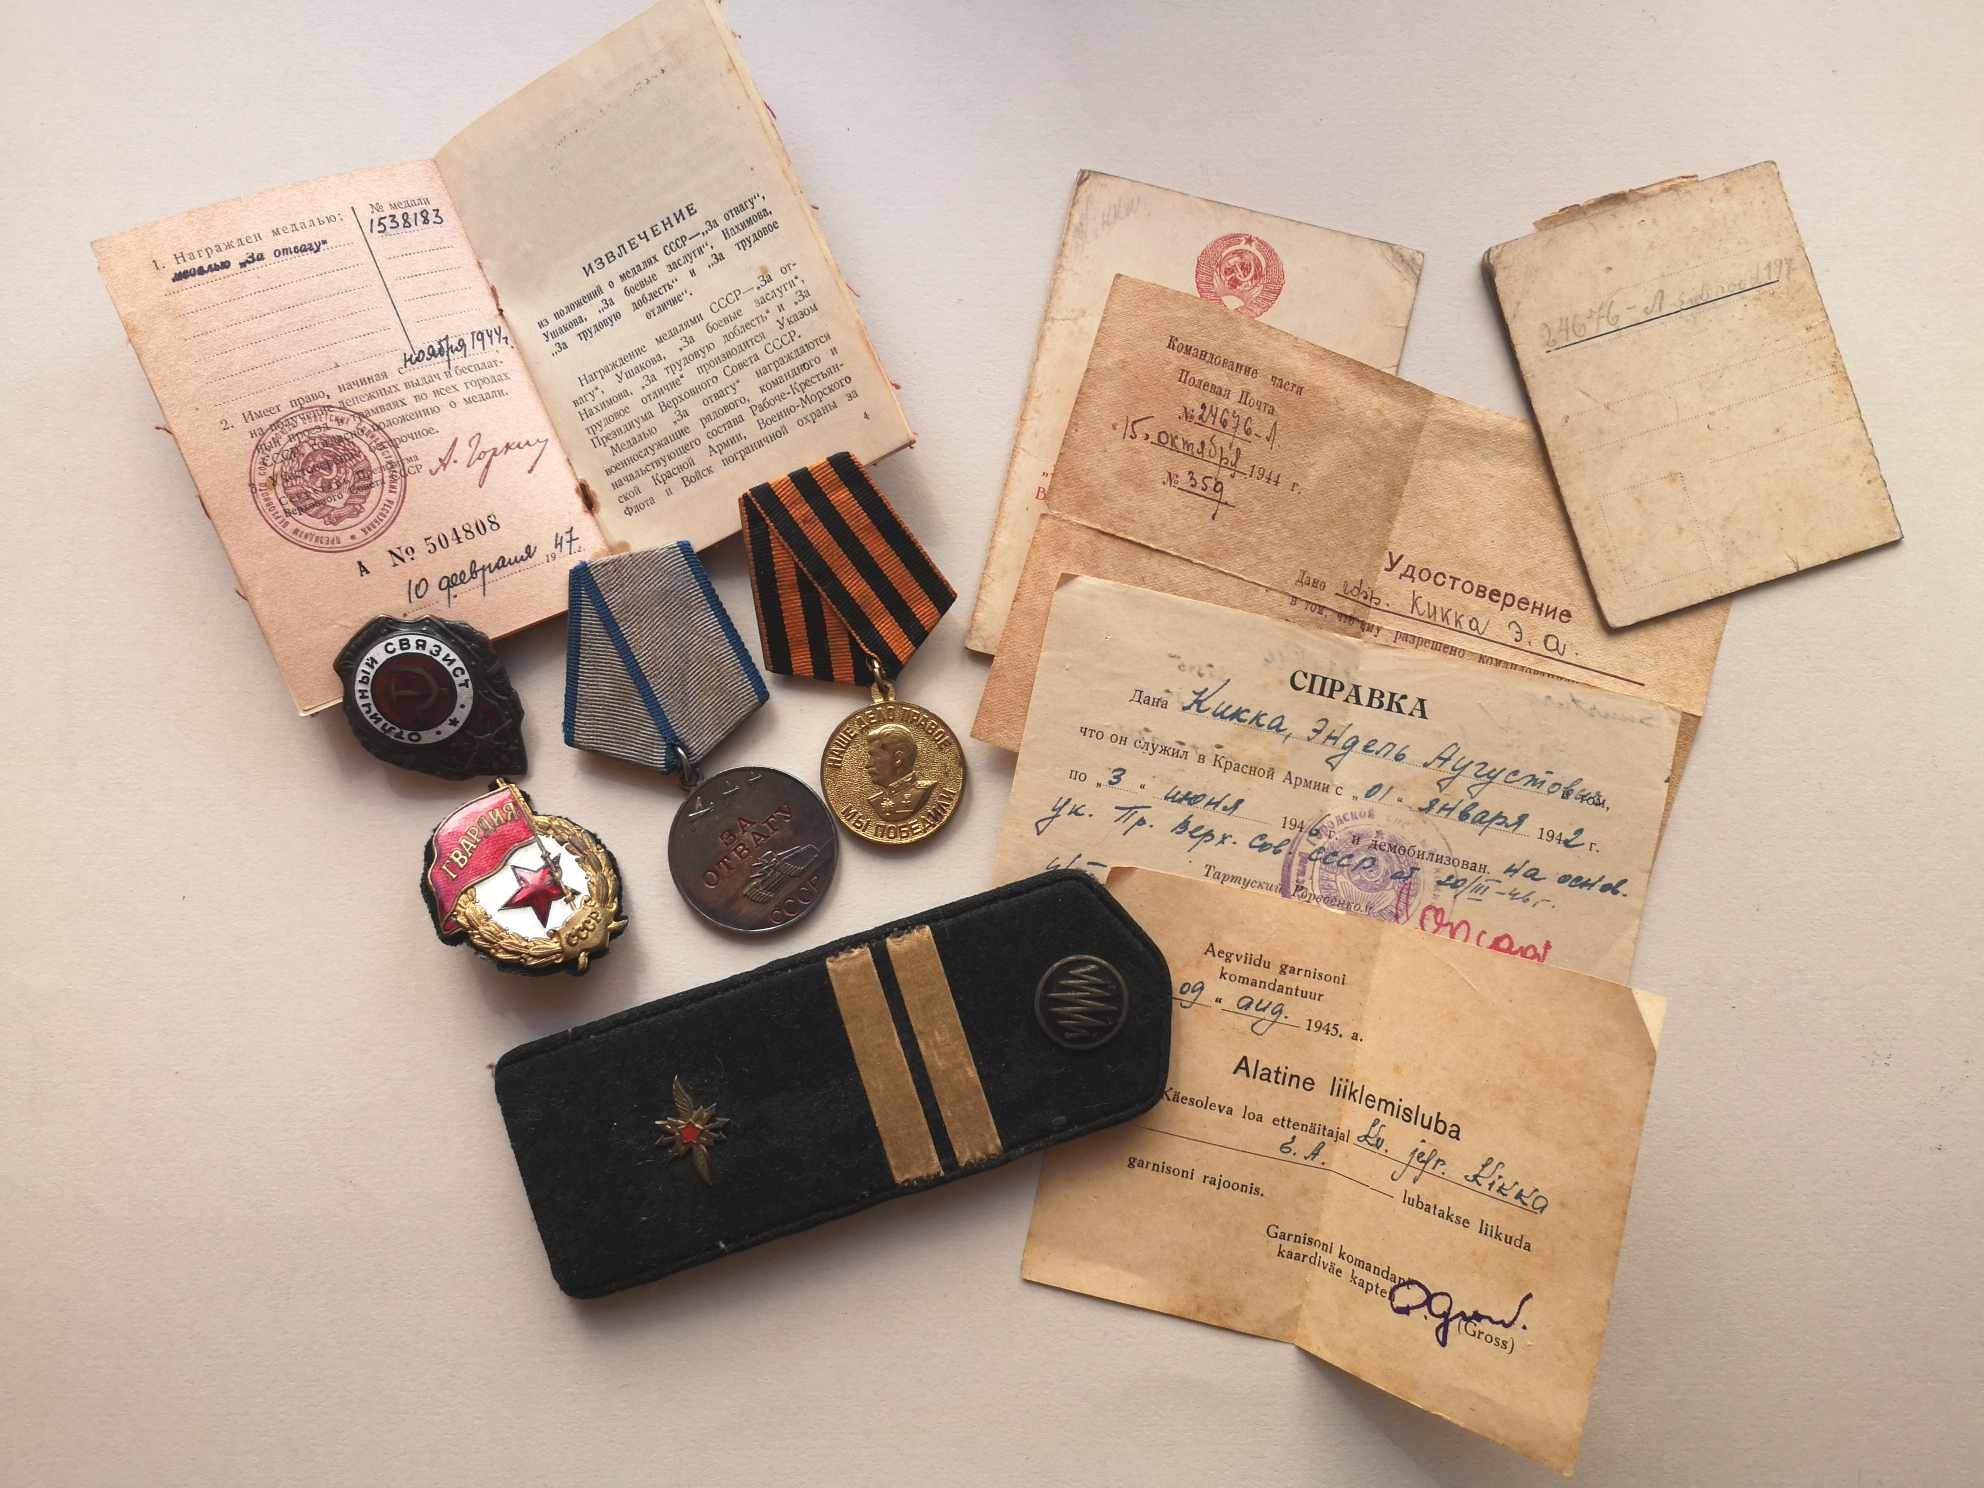 1. Награжден медалью:
медалью „За отвагу“
№ медали
1538183
2. Имеет право, начиная с ноября 1944 г.
на получение денежных выдач и бесплат-
ный проезд трамваях во всех городах
СССР положению о медали.
Президиума
Верховного Совета СССР
А. Горкин
А № 504808
10 февраля 1947 г.
ИЗВЛЕЧЕНИЕ
из положений о медалях СССР—„За отвагу“,
Ушакова, „За боевые заслуги“, Нахимова,
„За трудовую доблесть“ и „За трудовое
отличие“.
Награждение медалями СССР—„За от-
вагу“, Ушакова, „За боевые заслуги“,
Нахимова, „За трудовую доблесть“ и „За
трудовое отличие“ производится Указом
Президиума Верховного Совета СССР.
Медалью „За отвагу“ награждаются
военнослужащие рядового, командного и
начальствующего состава Рабоче-Крестьян-
ской Красной Армии, Военно-Морского
Флота и Войск пограничной охраны за
4
ОТЛИЧНЫЙ СВЯЗИСТ
ГВАРДИЯ
СССР
ЗА
ОТВАГУ
СССР
НАШЕ ДЕЛО ПРАВОЕ
МЫ ПОБЕДИЛИ
24676-Л
Командование части
Полевая Почта
№ 24676-Л
„15„ октября 1944 г.
№ 359
Удостоверение
Дано гвр. Кикка Э. А.
в том, что ему разрешено
СПРАВКА
Дана Кикка, Эндель Аугустович
в том,
что он служил в Красной Армии с „01„ января 1942 г.
по „3„ июня 1946 г. и демобилизован. на основ.
Ук. Пр. Верх. Сов. СССР от 20/III-46г.
Тартуский
Aegviidu garnisoni
komandantuur
09 “ aug. 1945. a.
Alatine liiklemisluba
Käesoleva loa ettenäitajal Kv. jefr. Kikka
E. A. lubatakse liikuda
garnisoni rajoonis.
Garnisoni komandant
kaardiväe kapten
(Gross)